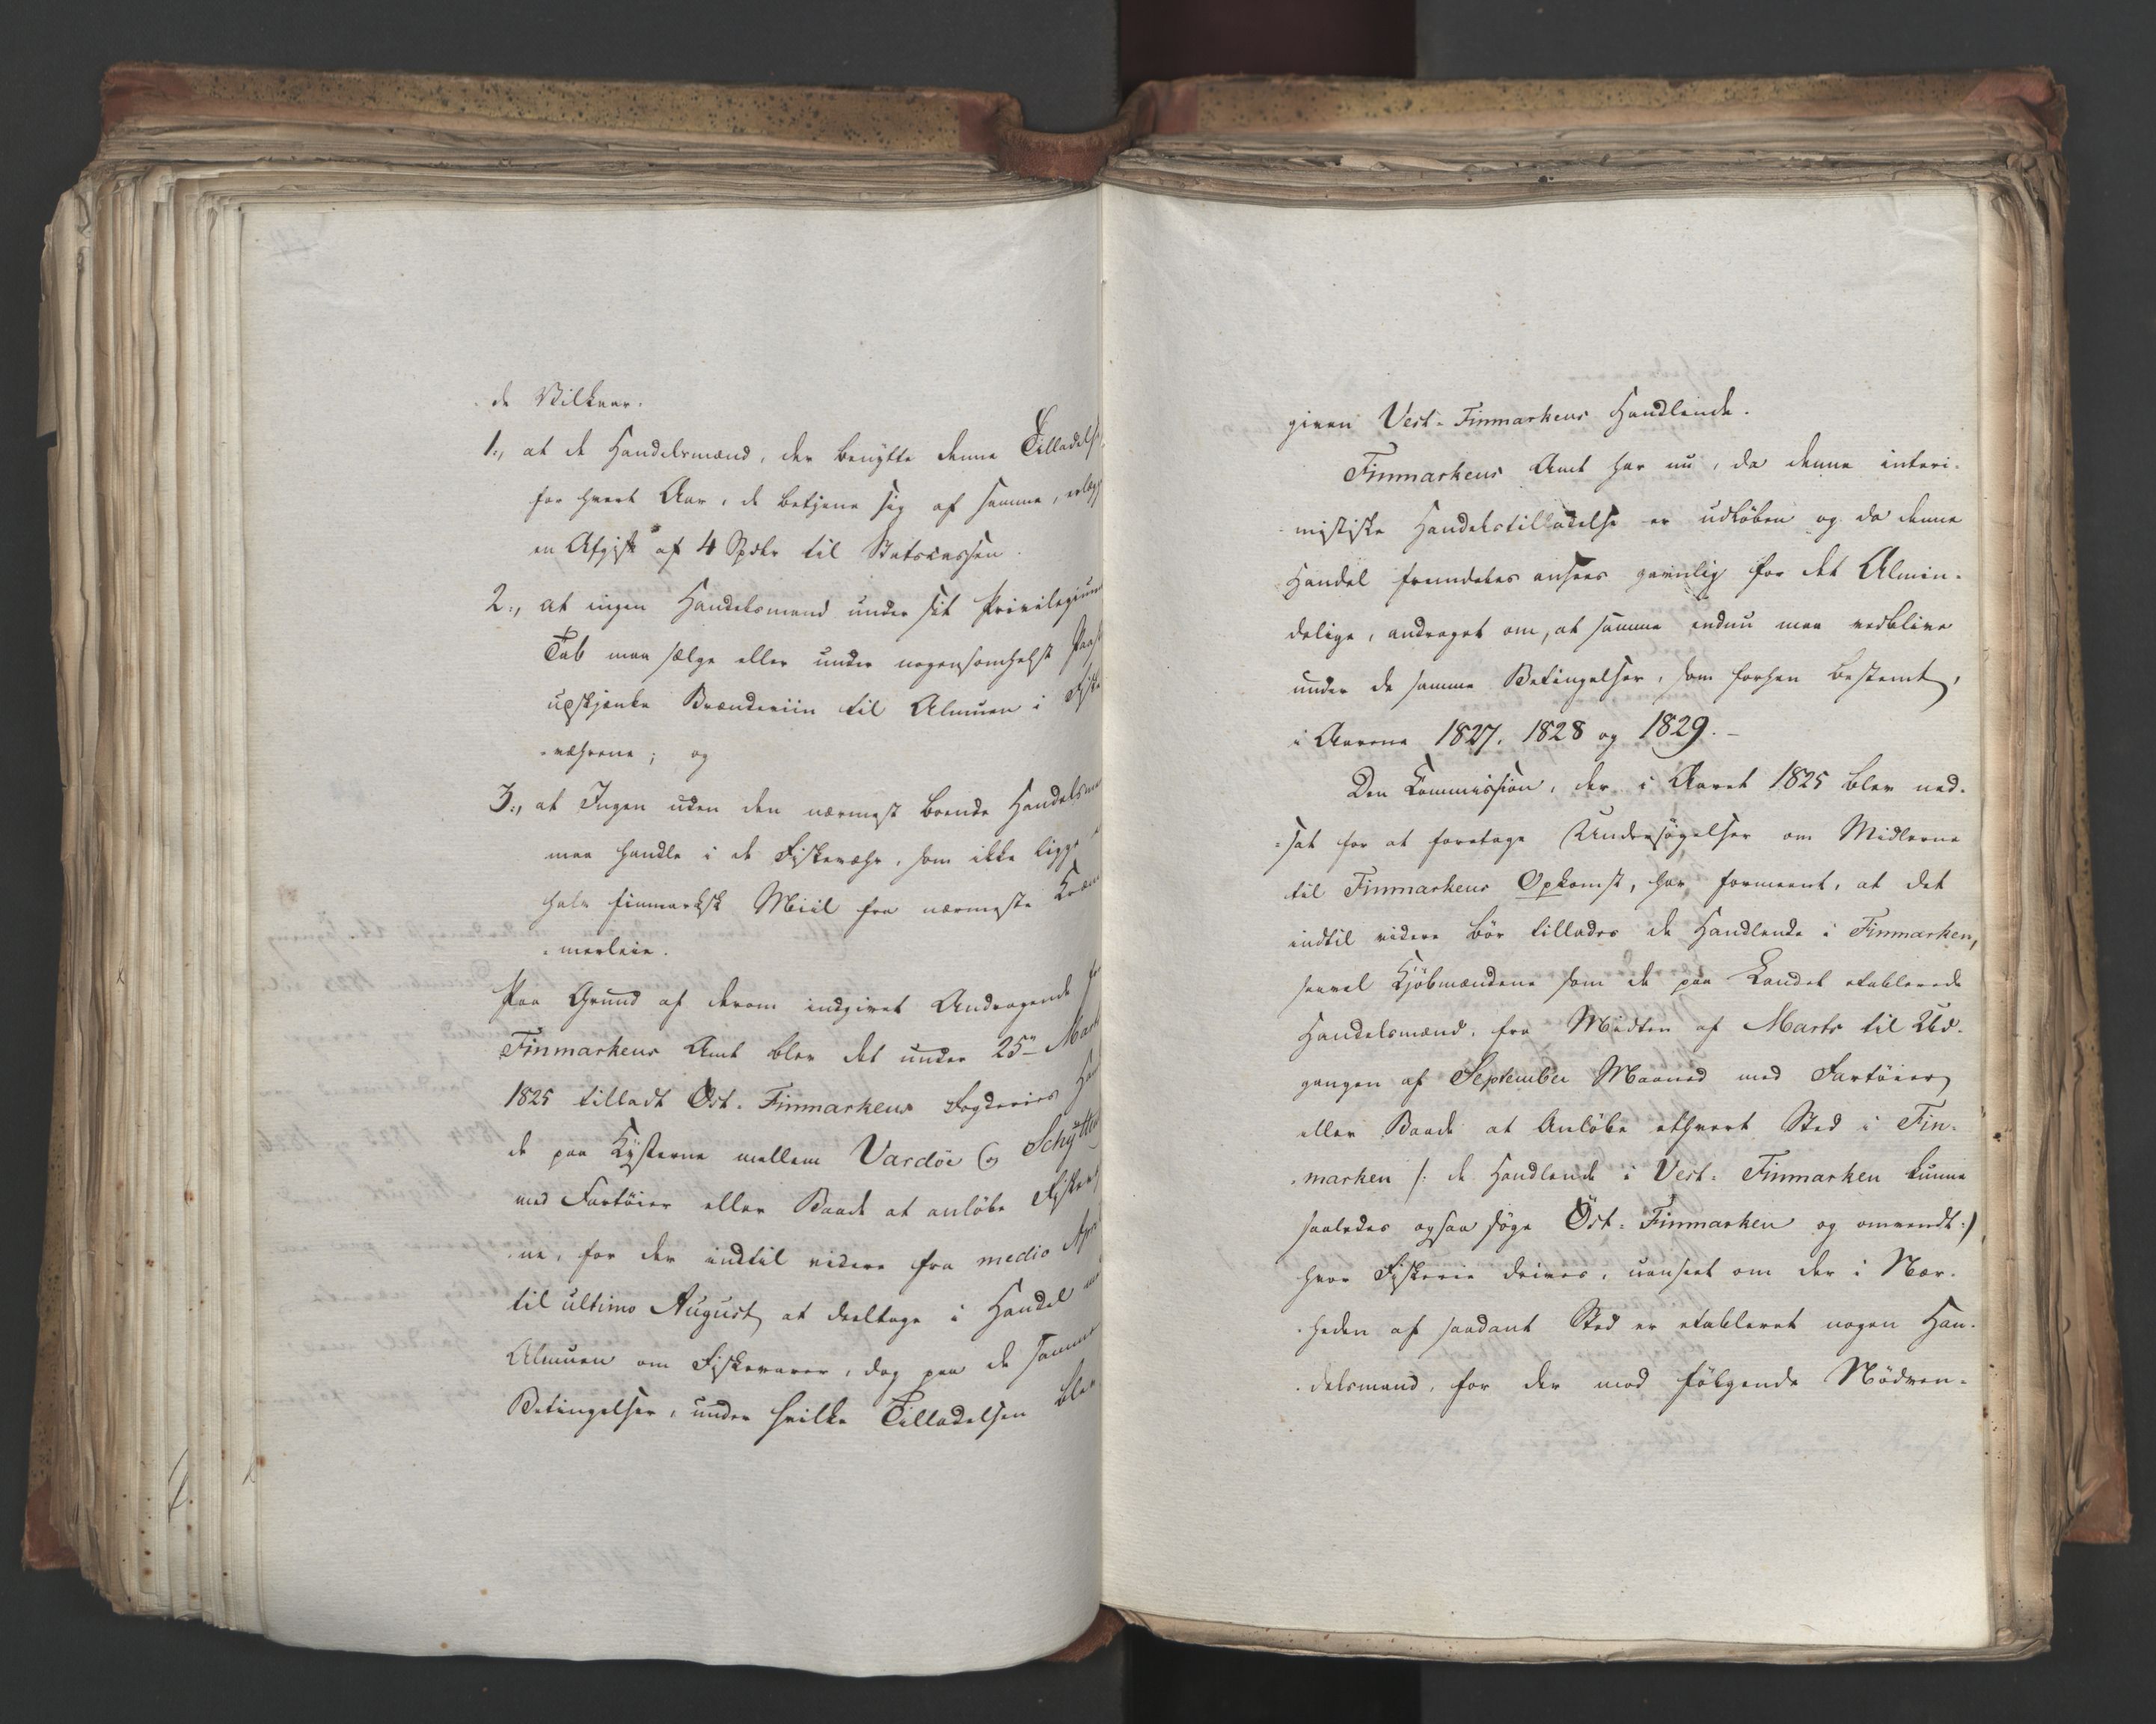 de Vilkaar.
1:, at de Handelsmænd, der benytte denne Tilladelse
for hvert Aar, de betjene sig af samme, erlægge
en Afgift af 4 Spdlr til Statscassen.
2:, at ingen Handelsmand under sit Privilegiums
Tab maa sælge eller under nogensomhelst Paas
udskjenke Brændeviin til Almuen i Fiske
-væhrene; og
3:, at Ingen uden den nærmest boende Handelsma
maa handle i de Fiskevæhr, som ikke ligge
halv finmarksk Miil fra nærmeste Kræm
-merleie.
Paa Grund af derom indgivet Andragende fra
Finmarkens Amt blev det under 25de Marts
1825 tilladt Öst-Finmarkens Fogderies Han
de paa Kysterne mellem Vardöe og Schytte
med Fartöier eller Baade at anlöbe Fiskev
ne, for der indtil videre fra medio April
til ultimo August at deeltage i Handel me
Almuen om Fiskevarer, dog paa de samme
Betingelser, under hvilke Tilladelsen blev
given Vest-Finmarkens Handlende.
Finmarkens Amt har nu, da denne interi-
mistiske Handelstilladelse er udlöben og da denne
Handel fremdeles ansees gavnlig for det Almin-
delige, andraget om, at samme endnu maa vedblive
under de samme Betingelser, som forhen bestemt,
i Aarene 1827. 1828 og 1829.-
Den Commission, der i Aaret 1825 blev ned-
-sat for at foretage Undersögelser om Midlerne
til Finmarkens Opkomst, har formeent, at det
indtil videre bör tillades de Handlende i Finmarken,
saavel Kjöbmændene som de paa Landet etablerede
Handelsmænd, fra Midten af Marts til Ud-
gangen af September Maaned med Fartöier
eller Baade at Anlöbe ethvert Sted i Fin-
-marken /: de Handlende i Vest-Finmarken kunne
saaledes ogsaa söge Öst-Finmarken og omvendt:/
hvor Fiskerie drives, uanseet om der i Nær-
-heden af saadant Sted er etableret nogen Han-
-delsmand, for der mod fölgende Nödven-